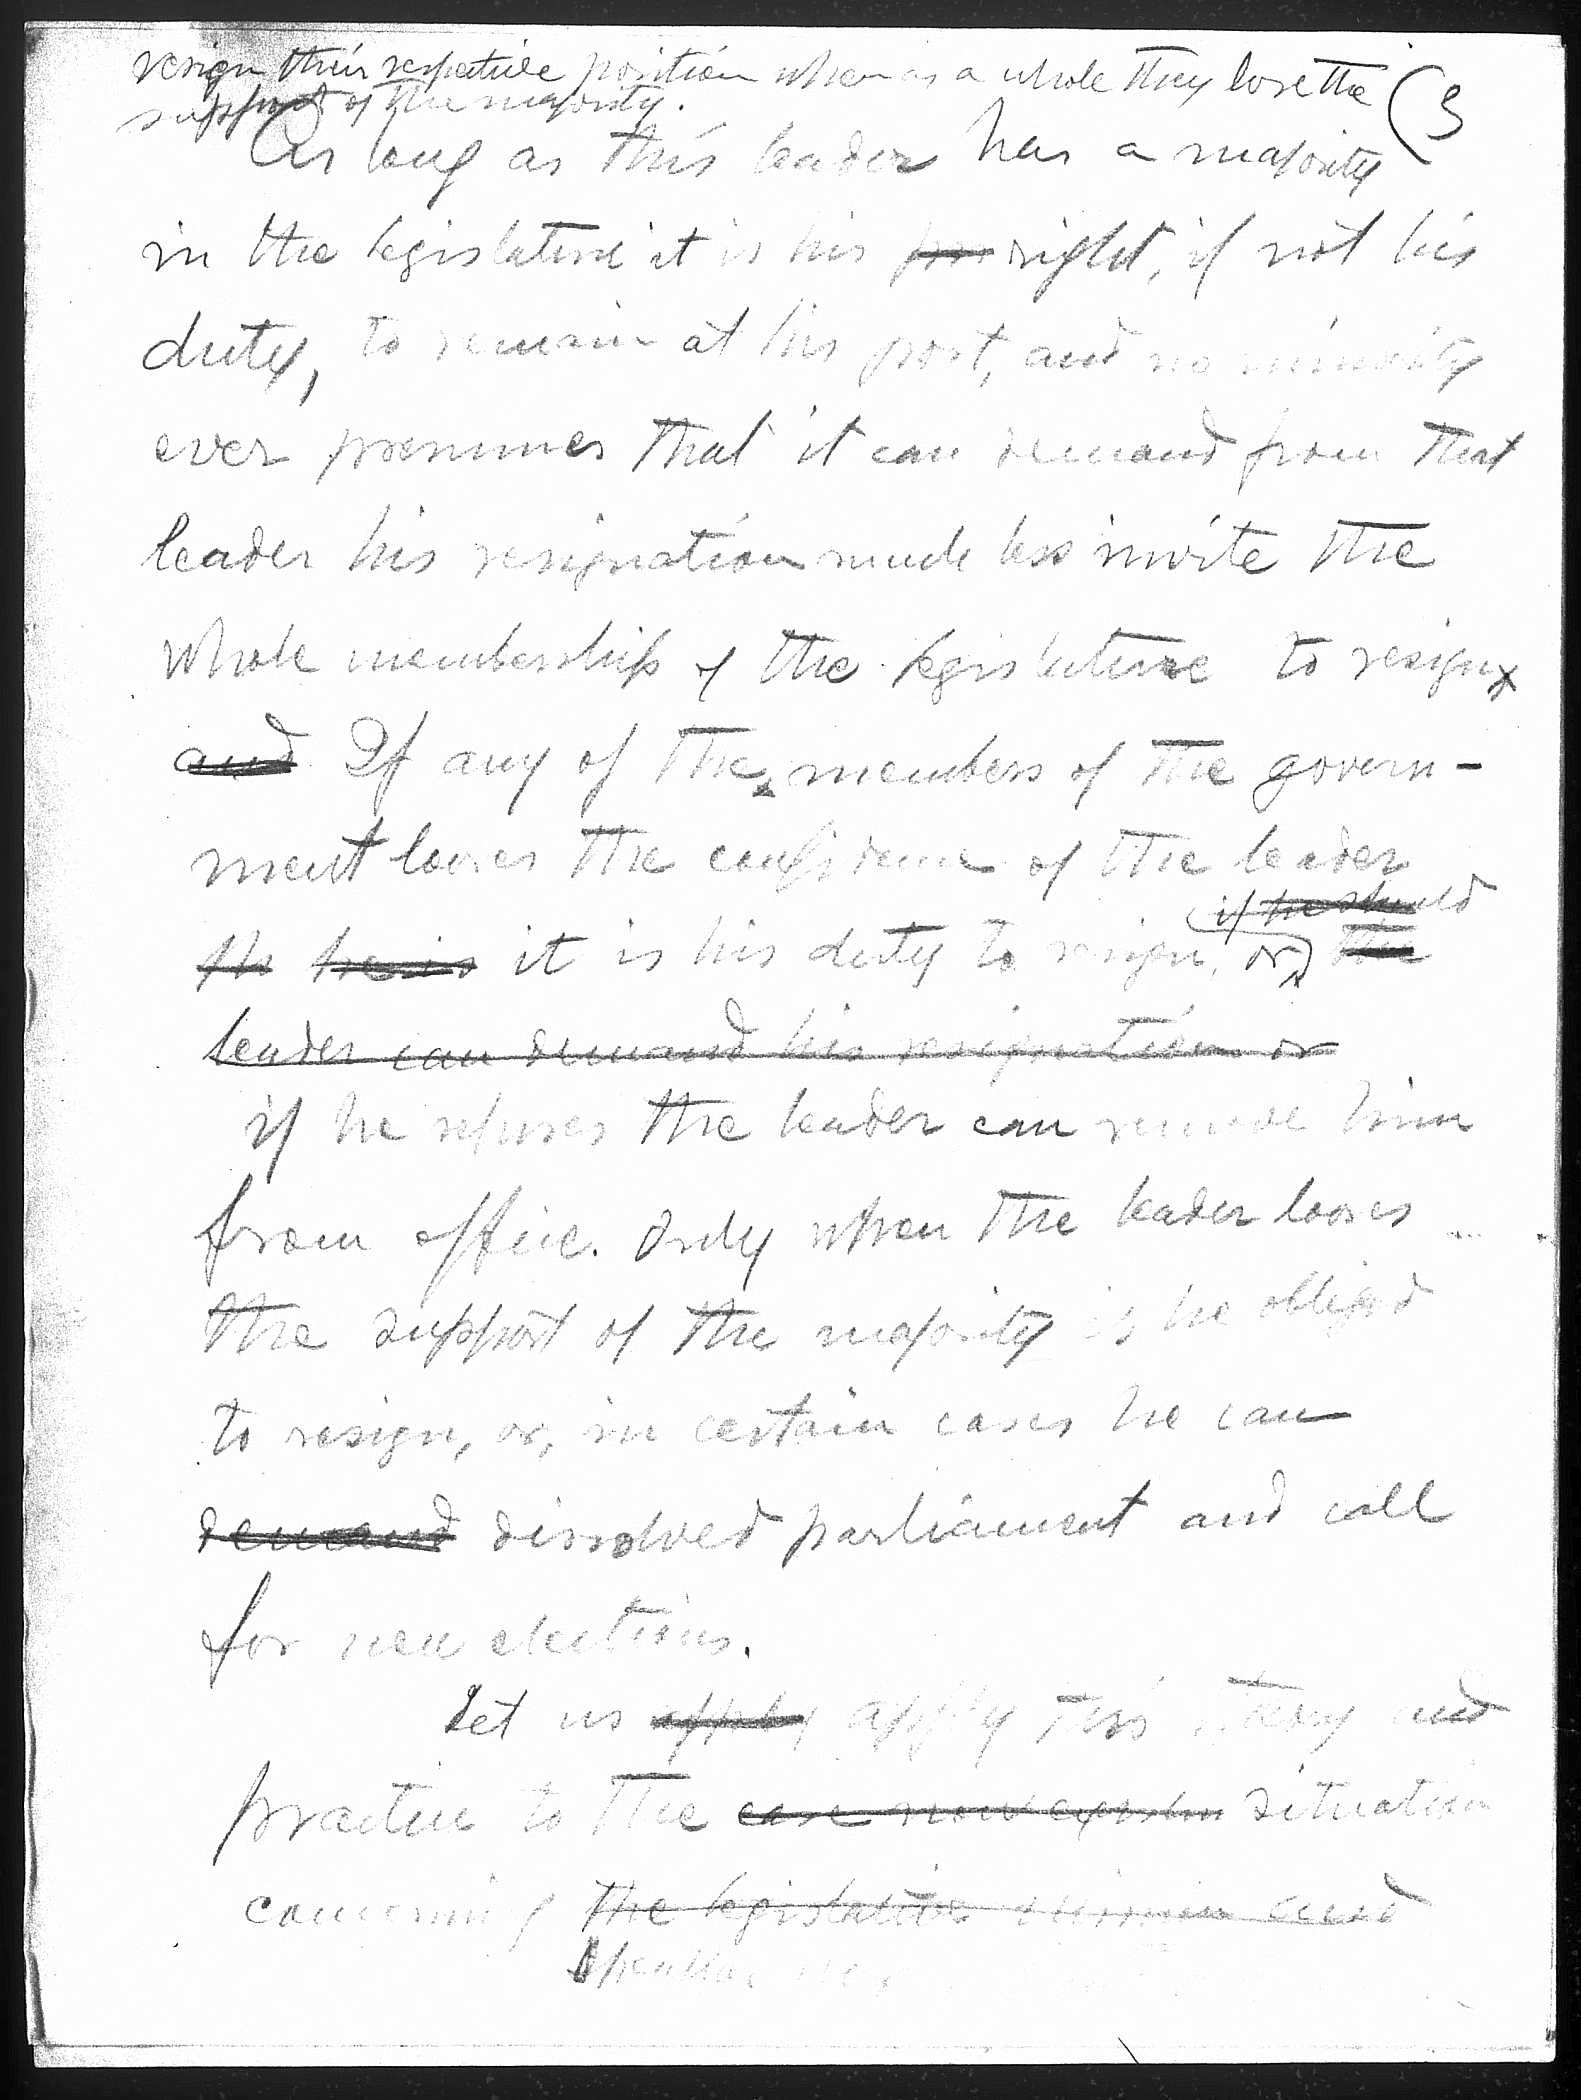 resign their respective position when as a whole they lose the (3
support of the majority.
As long as this leader has a majority
in the legislature it is his pos right, if not his
duty, to remain at his post, and no minority
ever presumes that it can demand from that
leader his resignation much less invite the
whole membership of the legislature to resign
and If any of the members of the govern-
ment looses the confidence of the leader
if he should
the he is it is his duty to resign, or, the
leader can demand his resignation or
if he refuses the leader can remove him
from office. Only when the leader looses
the support of the majority is he obliged
to resign, or, in certain cases he can
demand dissolved parliament and call
for new elections.
Let us apply apply this theory and
practice to the case now existin situation
concerning the legislative mission and
Speaker